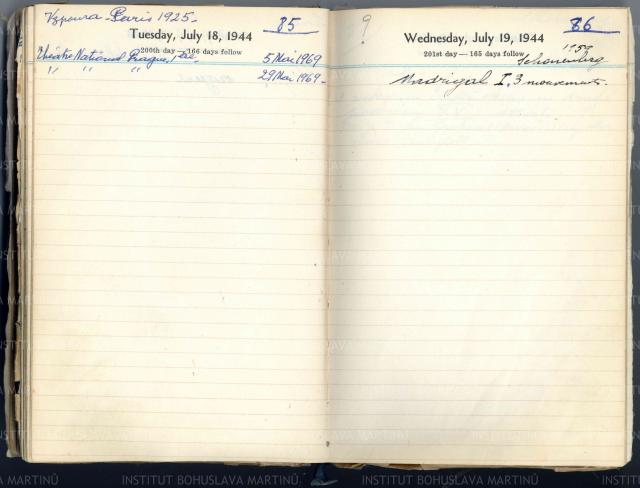 Vzpoura - Paris 1925 -
85
Tuesday, July 18, 1944
200th day — 166 days follow
Théâtre National Prague,
5 Mai 1969
" " "
29 Mai 1969 -
?
86
Wednesday, July 19, 1944
201st day — 165 days follow
1959
Schoenenberg
Madrigal I, 3 mouvements.
INSTITUT BOHUSLAVA MARTINŮ